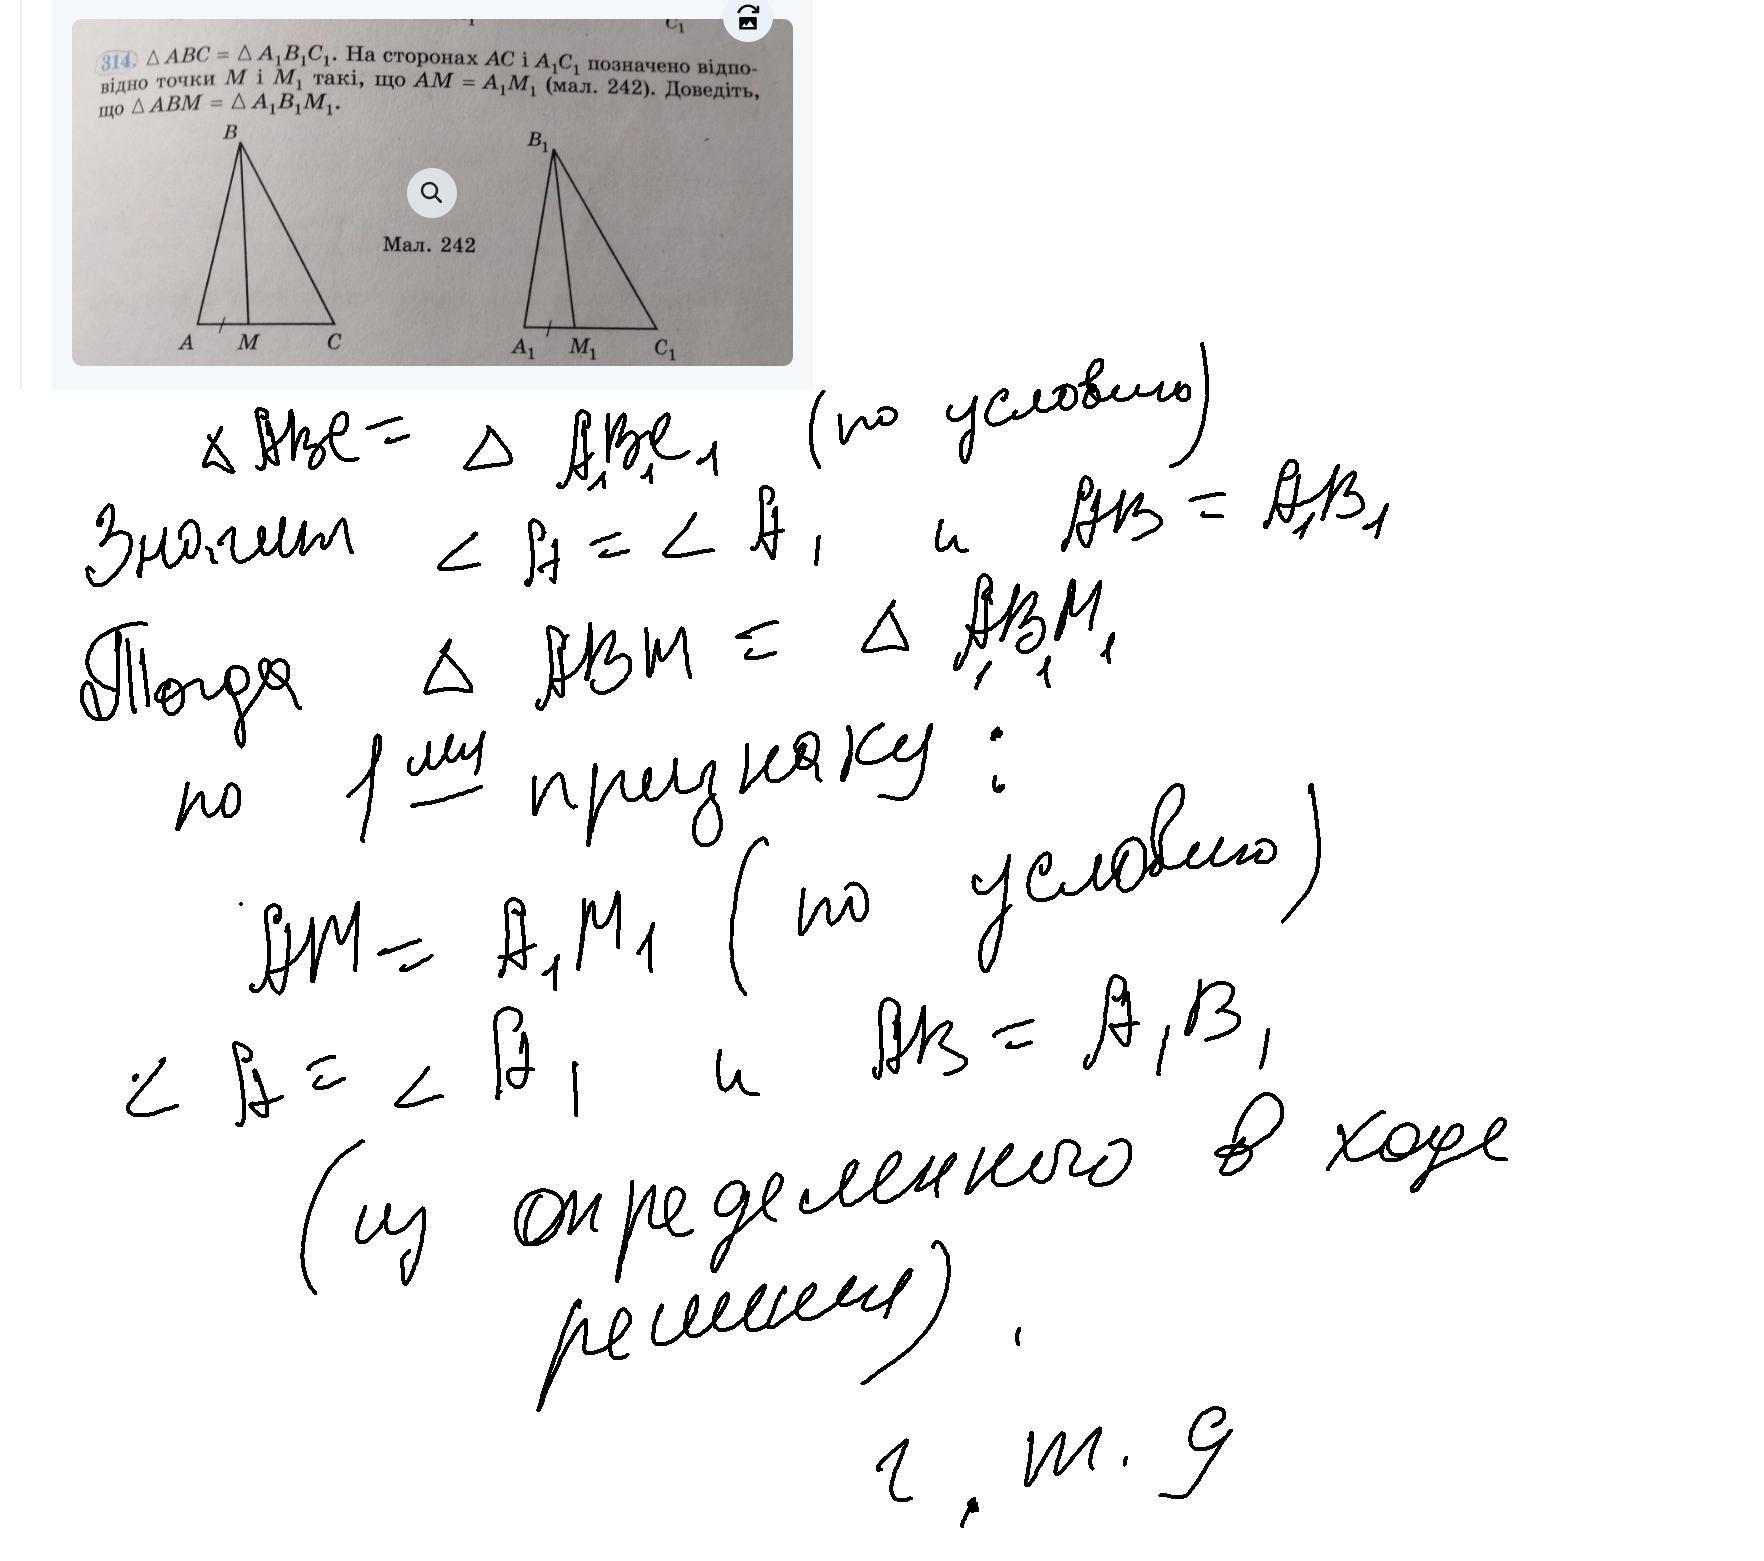 1
C₁
314. △ ABC = △ A₁B₁C₁. На сторонах AC і A₁C₁ позначено відпо-
відно точки M і M₁ такі, що AM = A₁M₁ (мал. 242). Доведіть,
що △ ABM = △ A₁B₁M₁.
B
B₁
Мал. 242
A M C
A₁ M₁ C₁
△ ABC = △ A₁B₁C₁ (по условию)
Значит ∠ A = ∠ A₁ и AB = A₁B₁
Тогда △ ABM = △ A₁B₁M₁
по 1му признаку :
AM = A₁M₁ (по условию)
∠ A = ∠ A₁ и AB = A₁B₁
(из определенного в ходе
решения) .
ч. т. д